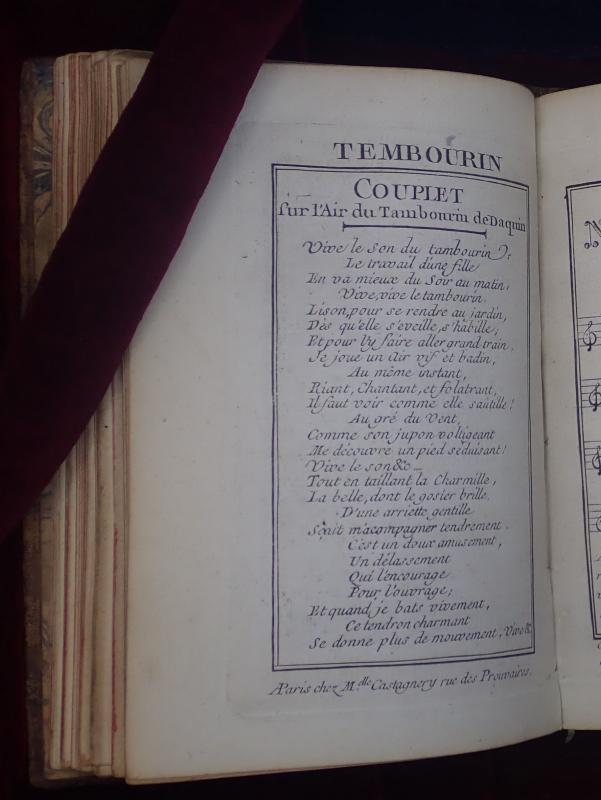 TEMBOURIN
COUPLET
sur l'Air du Tambourin de Daquin
Vive le son du tambourin
Le travail d'une fille
En va mieux du Soir au matin,
Vive, vive le tambourin.
Lison, pour se rendre au jardin,
Dès qu'elle s'eveille, s'habille;
Et pour l'y faire aller grand train.
Je joue un Air vif et badin,
Au même instant,
Riant, Chantant, et folatrant,
Il faut voir comme elle sautille!
Au gré du Vent,
Comme son jupon voltigeant
Me découvre un pied séduisant!
Vive le son &c
Tout en taillant la Charmille,
La belle, dont le gosier brille,
D'une arriette gentille
Sçait m'acompagner tendrement.
C'est un doux amusement,
Un délassement
Qui l'encourage
Pour l'ouvrage;
Et quand je bats vivement,
Ce tendron charmant
Se donne plus de mouvement, Vive &c
A Paris chez M.elle Castagnery rue des Prouvaires.